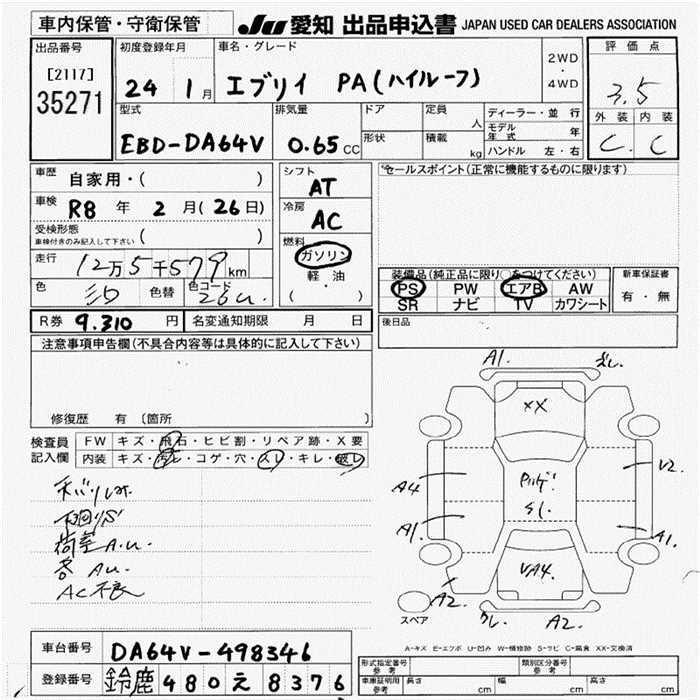 車内保管・守衛保管
JU 愛知 出品申込書 JAPAN USED CAR DEALERS ASSOCIATION
出品番号
[2117]
35271
初度登録年月
24 1月
車名・グレード
エブリイ PA(ハイルーフ)
2WD
・
4WD
評価点
3.5
外装 内装
C. C
型式
EBD-DA64V
排気量
0.65 CC
ドア
形状
定員 人
積載 kg
ディーラー・並行
モデル年式 年
ハンドル 左・右
車歴
自家用・( )
車検
R8 年 2 月(26日)
受検形態
車検付きのみ記入して下さい ( )
走行
12万5千579km
色 色替 色コード
26U
R券 9.310 円
名変通知期限 月 日
シフト
AT
冷房
AC
燃料
ガソリン
軽・油
( ・ )
セールスポイント(正常に機能するものに限ります)
装備品(純正品に限り○をつけてください)
PS PW エアB AW
SR ナビ TV カワシート
新車保証書
有・無
後日品
注意事項申告欄(不具合内容等は具体的に記入して下さい)
修復歴 有 〔箇所 〕
検査員
記入欄
FW キズ・飛石・ヒビ割・リペア跡・X要
内装 キズ・汚レ・コゲ・穴・スレ・キレ・破レ
下回りS
荷室A.U.
各AU.
AC不良
A1.
XX
A4
A1.
A1.
VA4.
A2.
A2.
スペア
A-キズ E-エクボ U-凹み W-補修跡 S-サビ C-腐食 XX-交換済
車台番号 DA64V-498346
登録番号 鈴鹿 480 え 8376
形式指定番号 参考
類別区分番号 参考
車庫証明用 参考
長さ cm
幅 cm
高さ cm